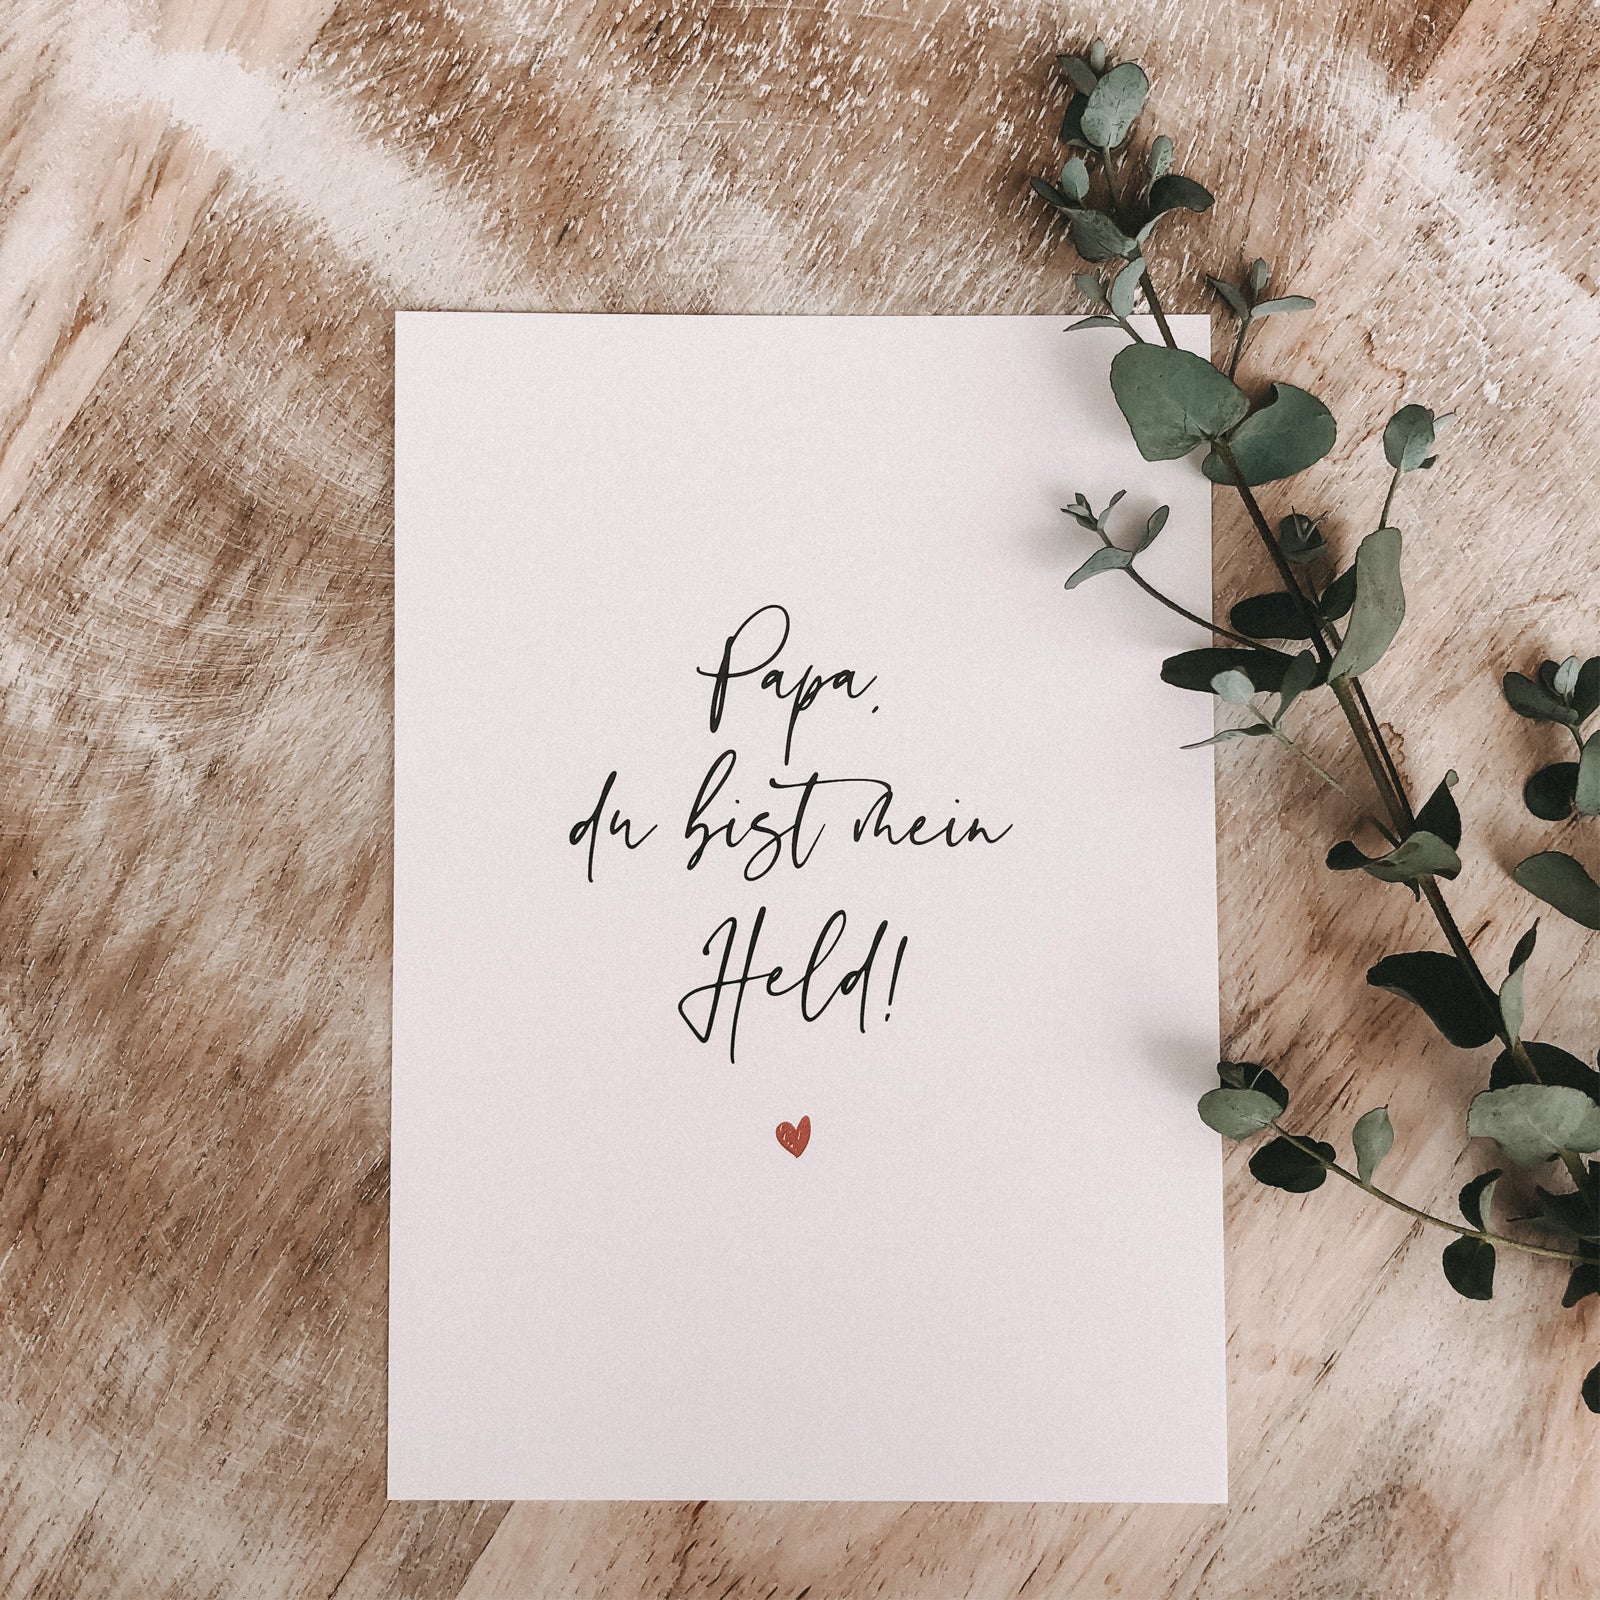 Papa,
du bist mein
Held!